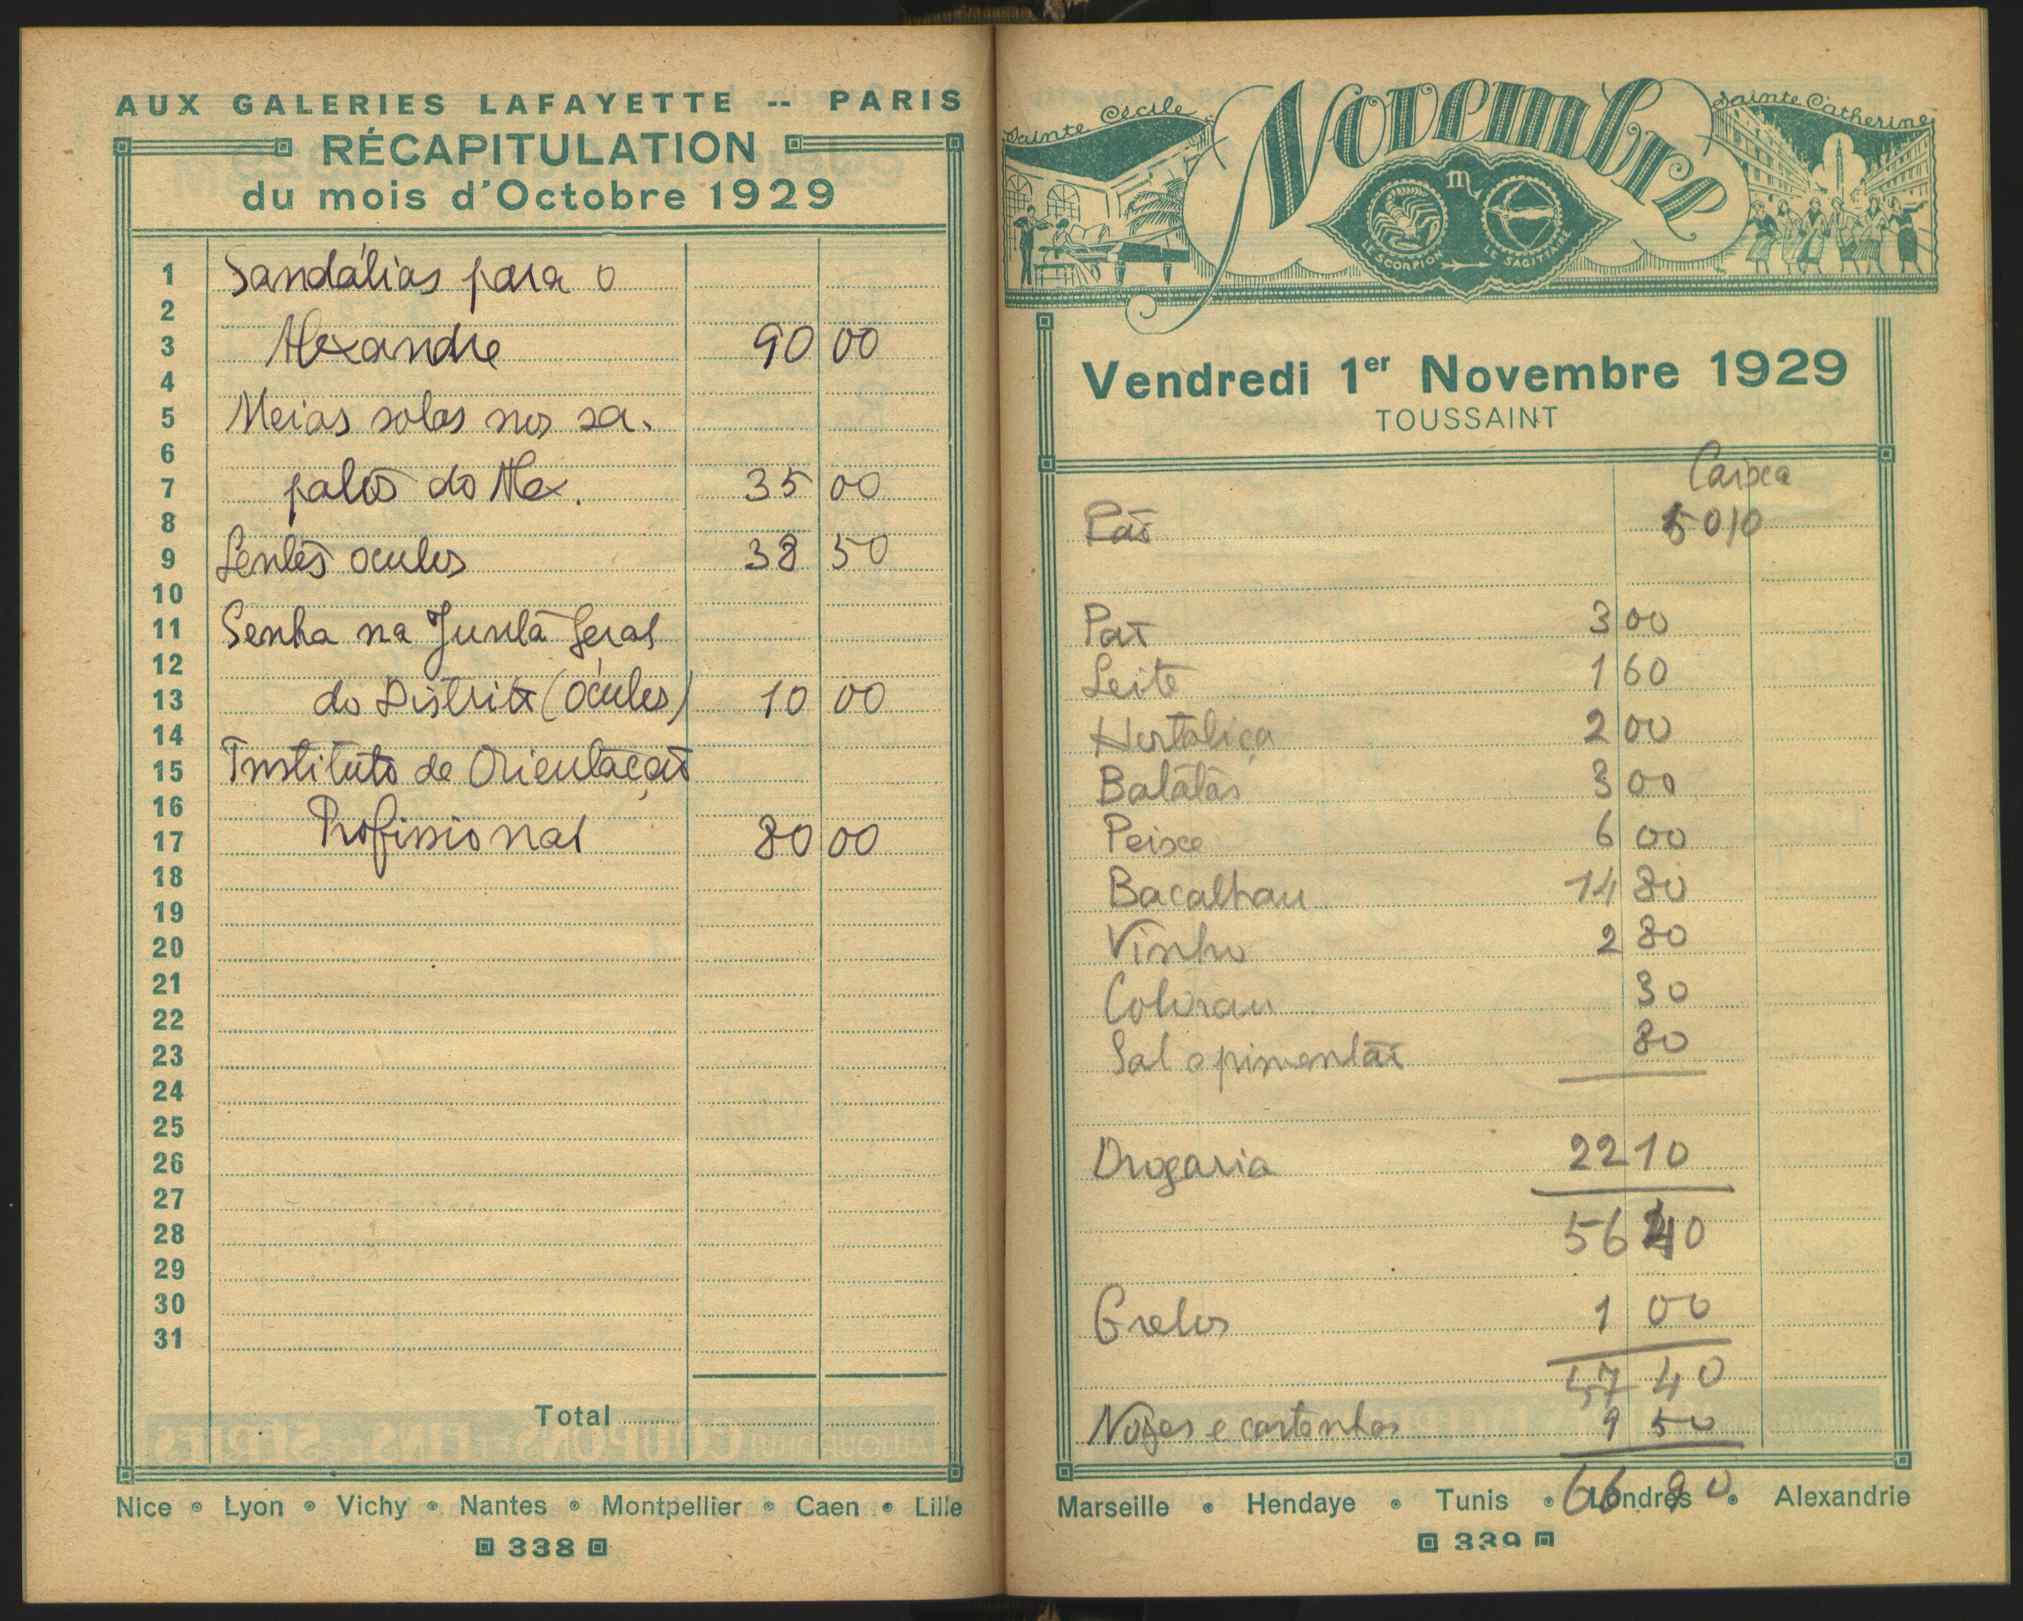 AUX GALERIES LAFAYETTE -- PARIS
RÉCAPITULATION
du mois d'Octobre 1929
1 Sandálias para o
2
3 Alexandre 90 00
4
5 Meias solas nos sa-
6
7 patos do Alex. 35 00
8
9 Lentes oculos 38 50
10
11 Senha na Junta Geral
12
13 do Distrito (óculos) 10 00
14
15 Instituto de Orientação
16
17 Profissional 80 00
18
19
20
21
22
23
24
25
26
27
28
29
30
31
Total
Nice • Lyon • Vichy • Nantes • Montpellier • Caen • Lille
338
Sainte Cécile
Novembre
Sainte Catherine
LE SCORPION
LE SAGITTAIRE
Vendredi 1er Novembre 1929
TOUSSAINT
Caixa
Pão 5010
Pão 3 00
Leite 1 60
Hortaliça 2 00
Batatas 3 00
Peixe 6 00
Bacalhau 14 80
Vinho 2 80
Colorau 30
Sal e pimentão 80
Drogaria 22 10
56 40
Grelos 1 00
57 40
Nozes e castanhas 9 50
66 90
Marseille • Hendaye • Tunis • Londres • Alexandrie
339